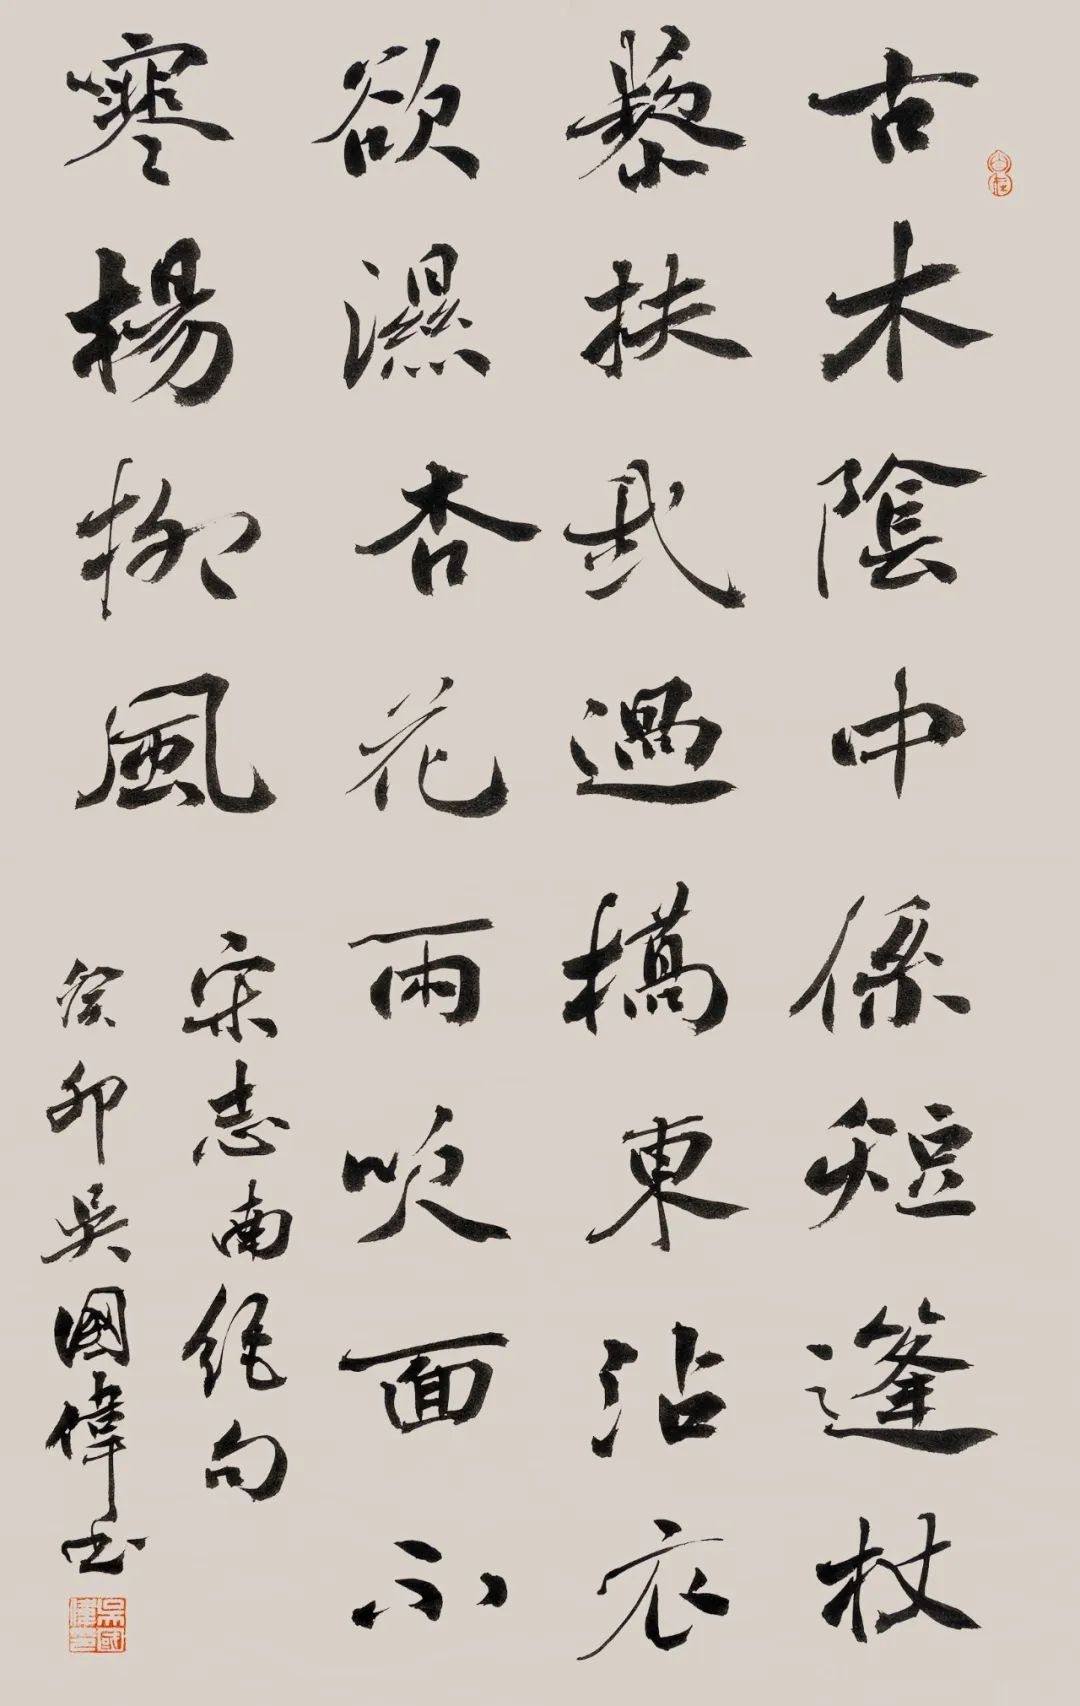 古木陰中係短篷杖
藜扶我過橋東沾衣
欲濕杏花雨吹面不
寒楊柳風
宋志南絕句
癸卯吳國偉書